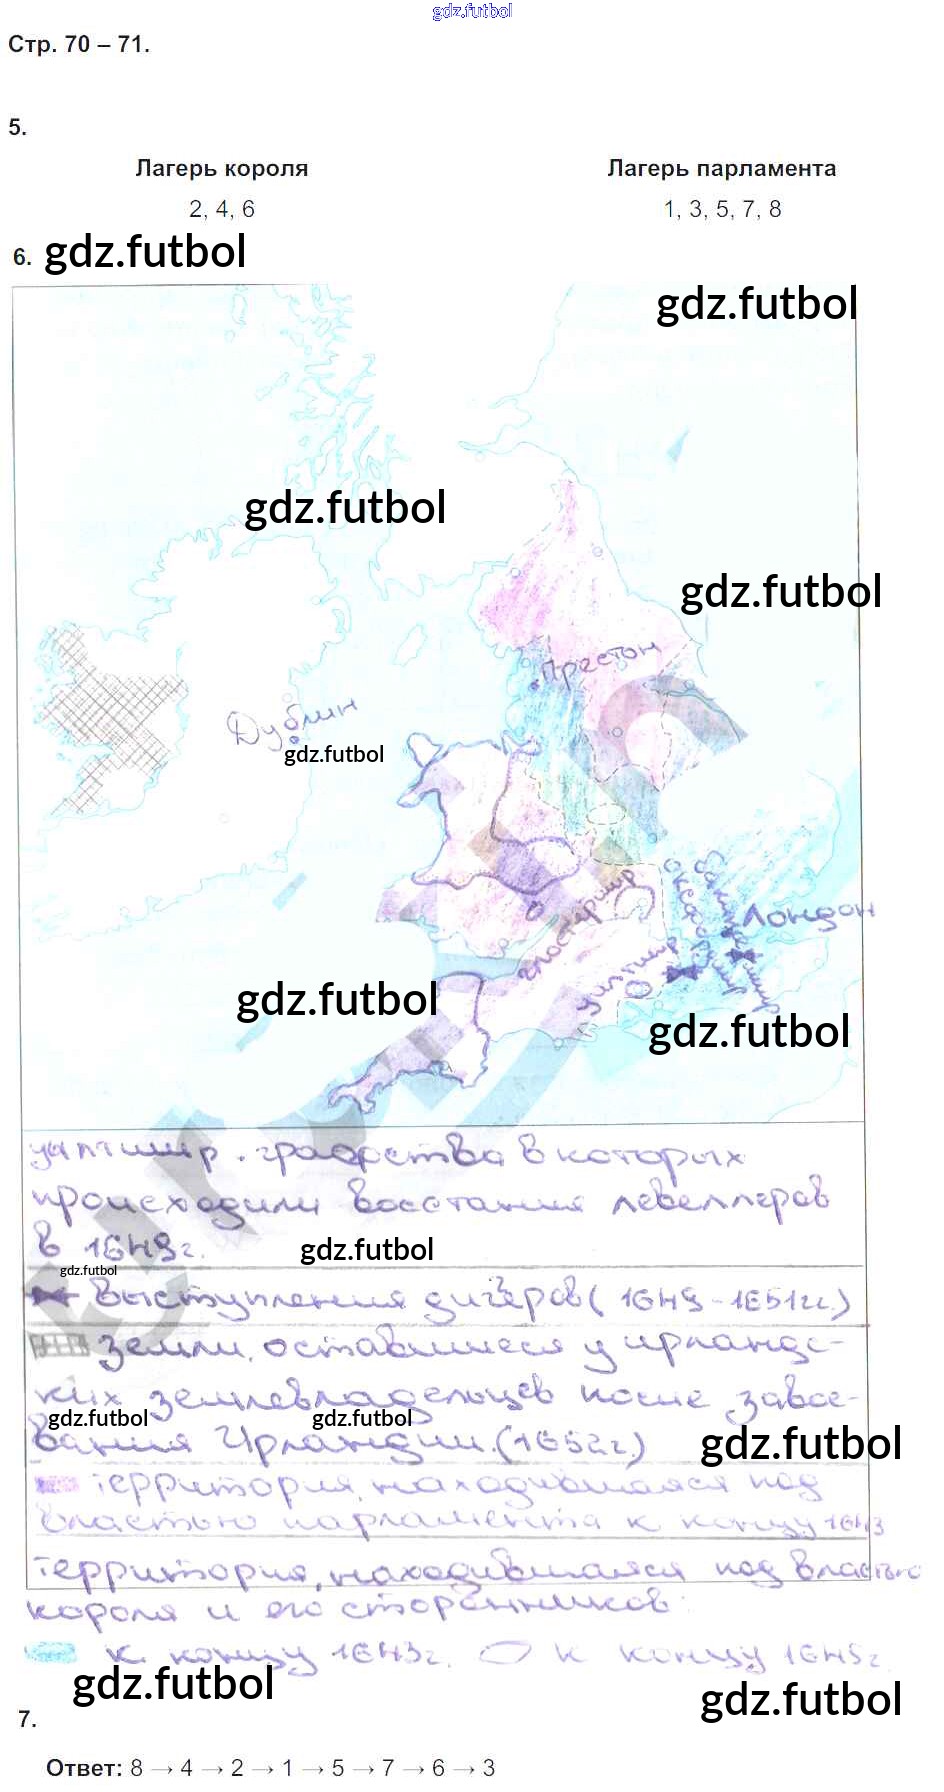 gdz.futbol
Стр. 70 – 71.
5.
Лагерь короля Лагерь парламента
2, 4, 6 1, 3, 5, 7, 8
6. gdz.futbol
gdz.futbol
gdz.futbol
gdz.futbol
Престон
Дублин
gdz.futbol
Лондон
глостершир
уилтшир
gdz.futbol
gdz.futbol
уилтшир - графства в которых
происходили восстания левеллеров
в 1649г.
gdz.futbol
gdz.futbol
Выступления диггеров (1649-1651гг.)
Земли, оставшиеся у ирландс-
ких землевладельцев после завое-
gdz.futbol gdz.futbol
вания Ирландии. (1652г.)
gdz.futbol
территория, находившаяся под
властью парламента к концу 1643
территория, находившаяся под властью
короля и его сторонников:
к концу 1643г. к концу 1645г.
gdz.futbol
gdz.futbol
7.
Ответ: 8 → 4 → 2 → 1 → 5 → 7 → 6 → 3